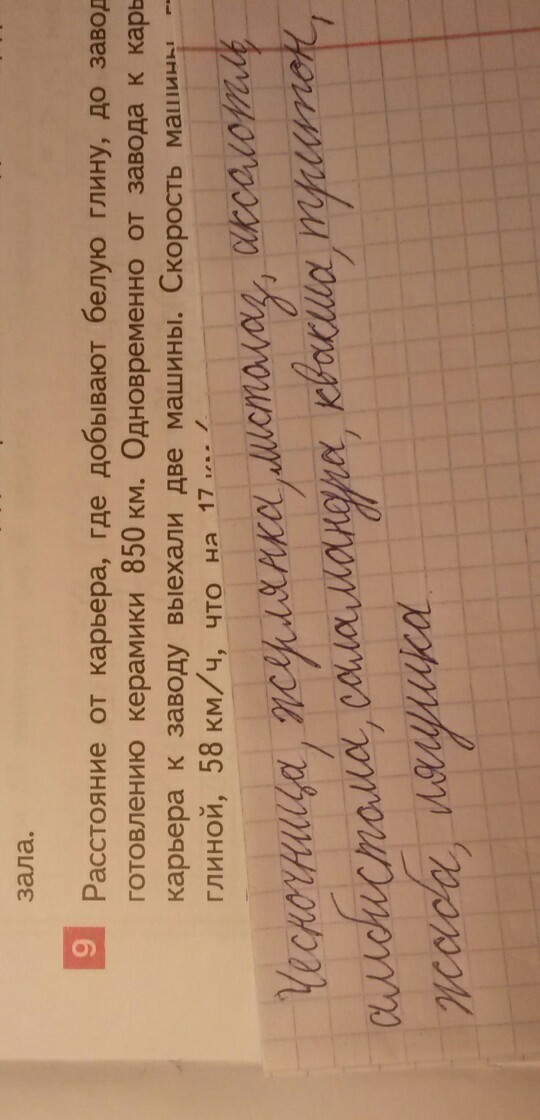 зала.
9 Расстояние от карьера, где добывают белую глину, до завод
готовлению керамики 850 км. Одновременно от завода к карь
карьера к заводу выехали две машины. Скорость машины
глиной, 58 км/ч, что на 17
Чесночница, жерлянка, листолаз, аксолотль,
амбистома, саламандра, квакша, тритон,
жаба, лягушка